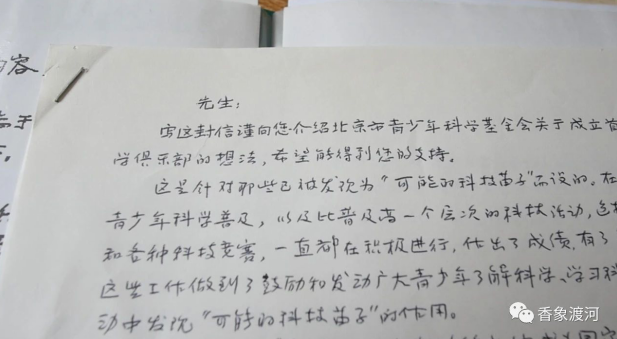 内容
高于
先生：
写这封信谨向您介绍北京市青少年科学基金会关于成立首
学俱乐部的想法，希望能得到您的支持。
这是针对那些已被发现为“可能的科技苗子”而设的。在
青少年科学普及，以及比普及高一个层次的科技活动，这
和各种科技竞赛，一直都在积极进行，作出了成绩，有了
这些工作做到了鼓励和发动广大青少年了解科学、学习科
动中发现“可能的科技苗子”的作用。
香象渡河